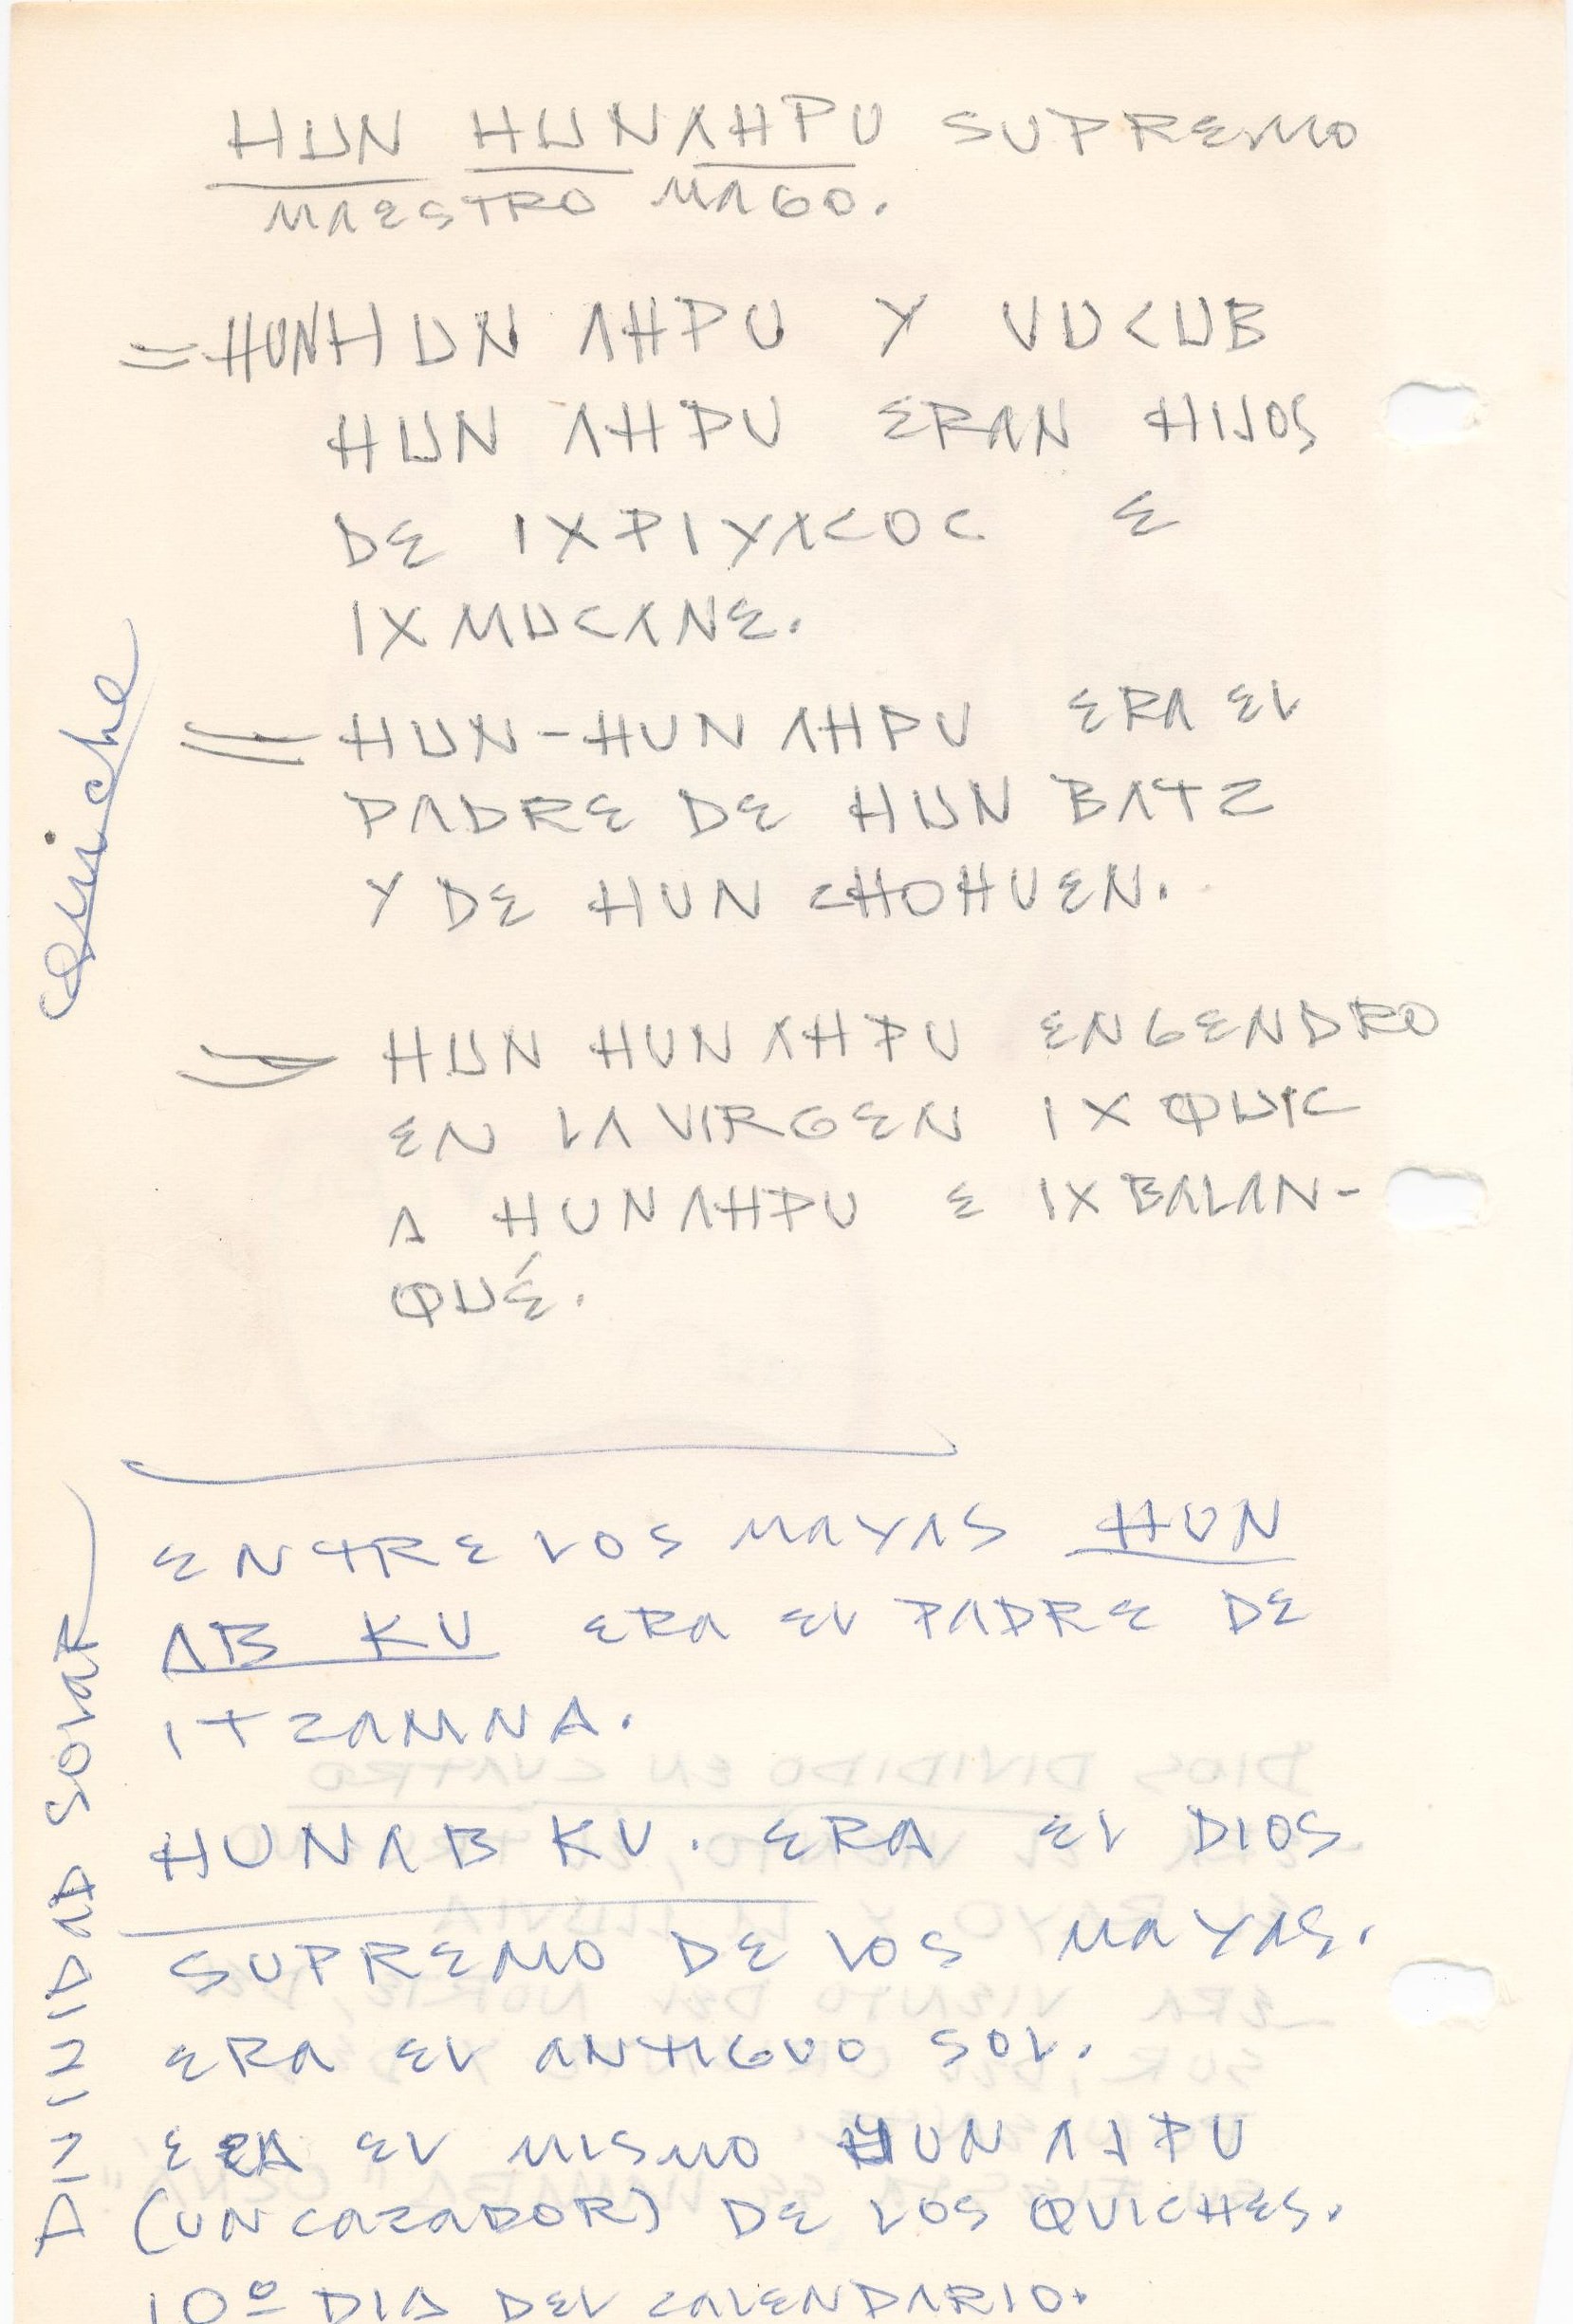 HUN HUNAHPU SUPREMO
MAESTRO MAGO.
=HUNHUN AHPU Y VUCUB
HUN AHPU ERAN HIJOS
DE IXPIYACOC E
IXMUCANE.
Quiche
= HUN-HUN AHPU ERA EL
PADRE DE HUN BATZ
Y DE HUN CHOHUEN.
HUN HUN AHPU ENGENDRO
EN LA VIRGEN IX QUIC
A HUNAHPU E IXBALAN-
QUÉ.
DIVINIDAD SOLAR
ENTRE LOS MAYAS HUN
AB KU ERA EL PADRE DE
ITZAMNA.
HUNAB KU. ERA EL DIOS
SUPREMO DE LOS MAYAS.
ERA EL ANTIGUO SOL.
ERA EL MISMO HUN AHPU
(UN CAZADOR) DE LOS QUICHES.
10º DIA DEL CALENDARIO.